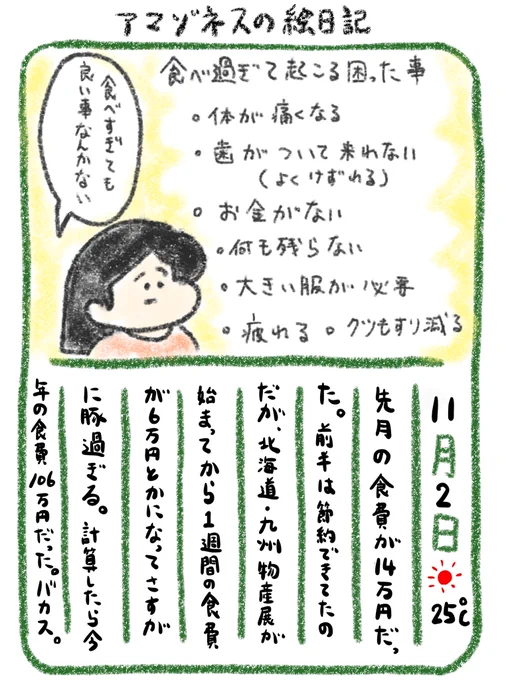 アマゾネスの絵日記
食べすぎても
良い事なんかない
食べ過ぎて起こる困った事
○ 体が痛くなる
○ 歯がついて来れない
(よくけずれる)
○ お金がない
○ 何も残らない
○ 大きい服が必要
○ 疲れる ○ クツもすり減る
11月2日 25℃
先月の食費が14万円だっ
た。前半は節約できてたの
だが、北海道・九州物産展が
始まってから1週間の食費
が6万円とかになってさすが
に豚過ぎる。計算したら今
年の食費106万円だった。バカス。